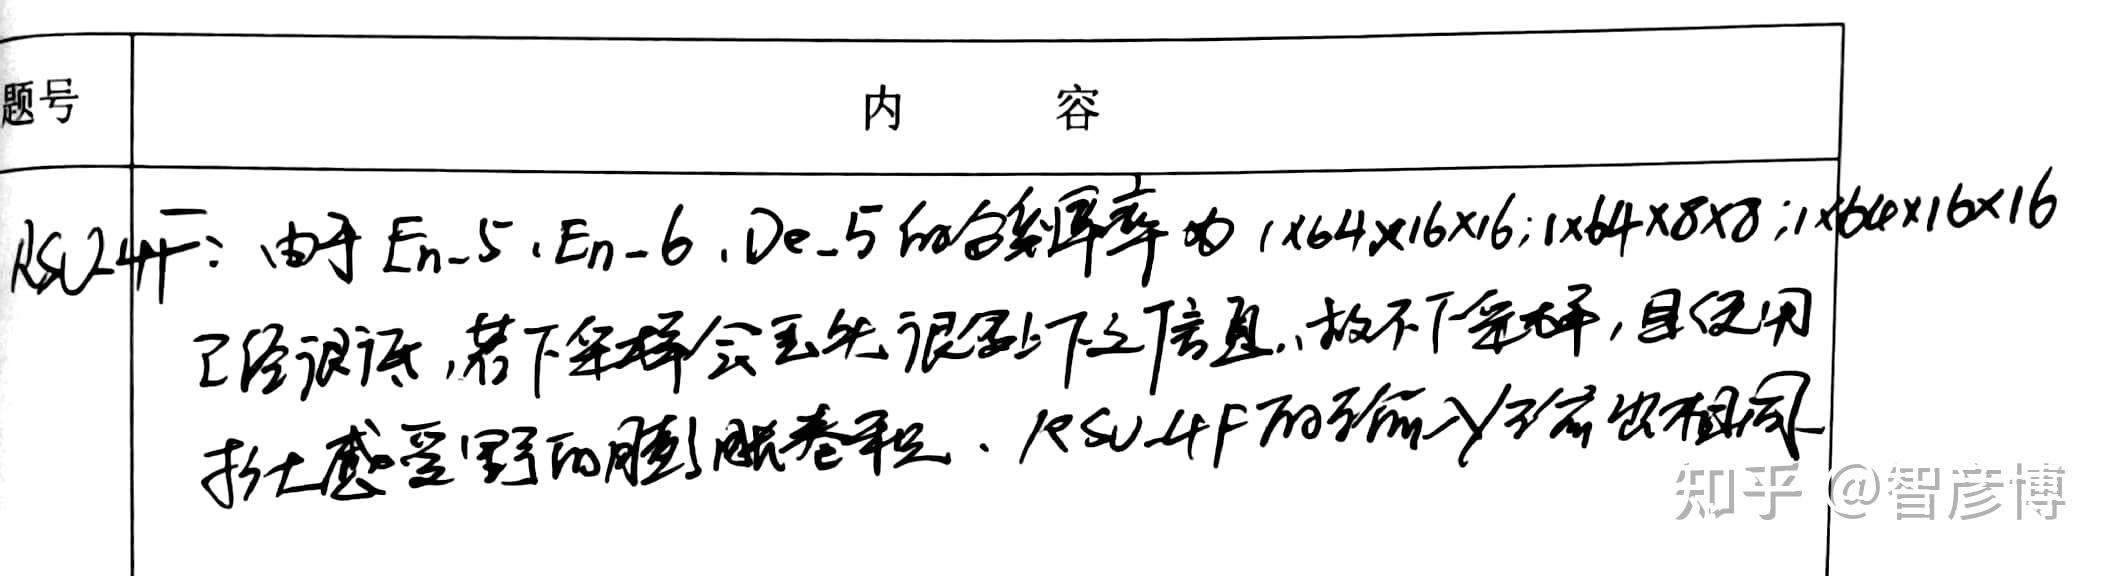 题号 内 容
RSU-4F: 由于En_5、En_6、De_5的分辨率为1×64×16×16;1×64×8×8;1×64×16×16
已经很低,若下采样会丢失很多上下文信息,故不下采样,且使用
扩大感受野的膨胀卷积. RSU-4F的输入输出相同
知乎 @智彦博